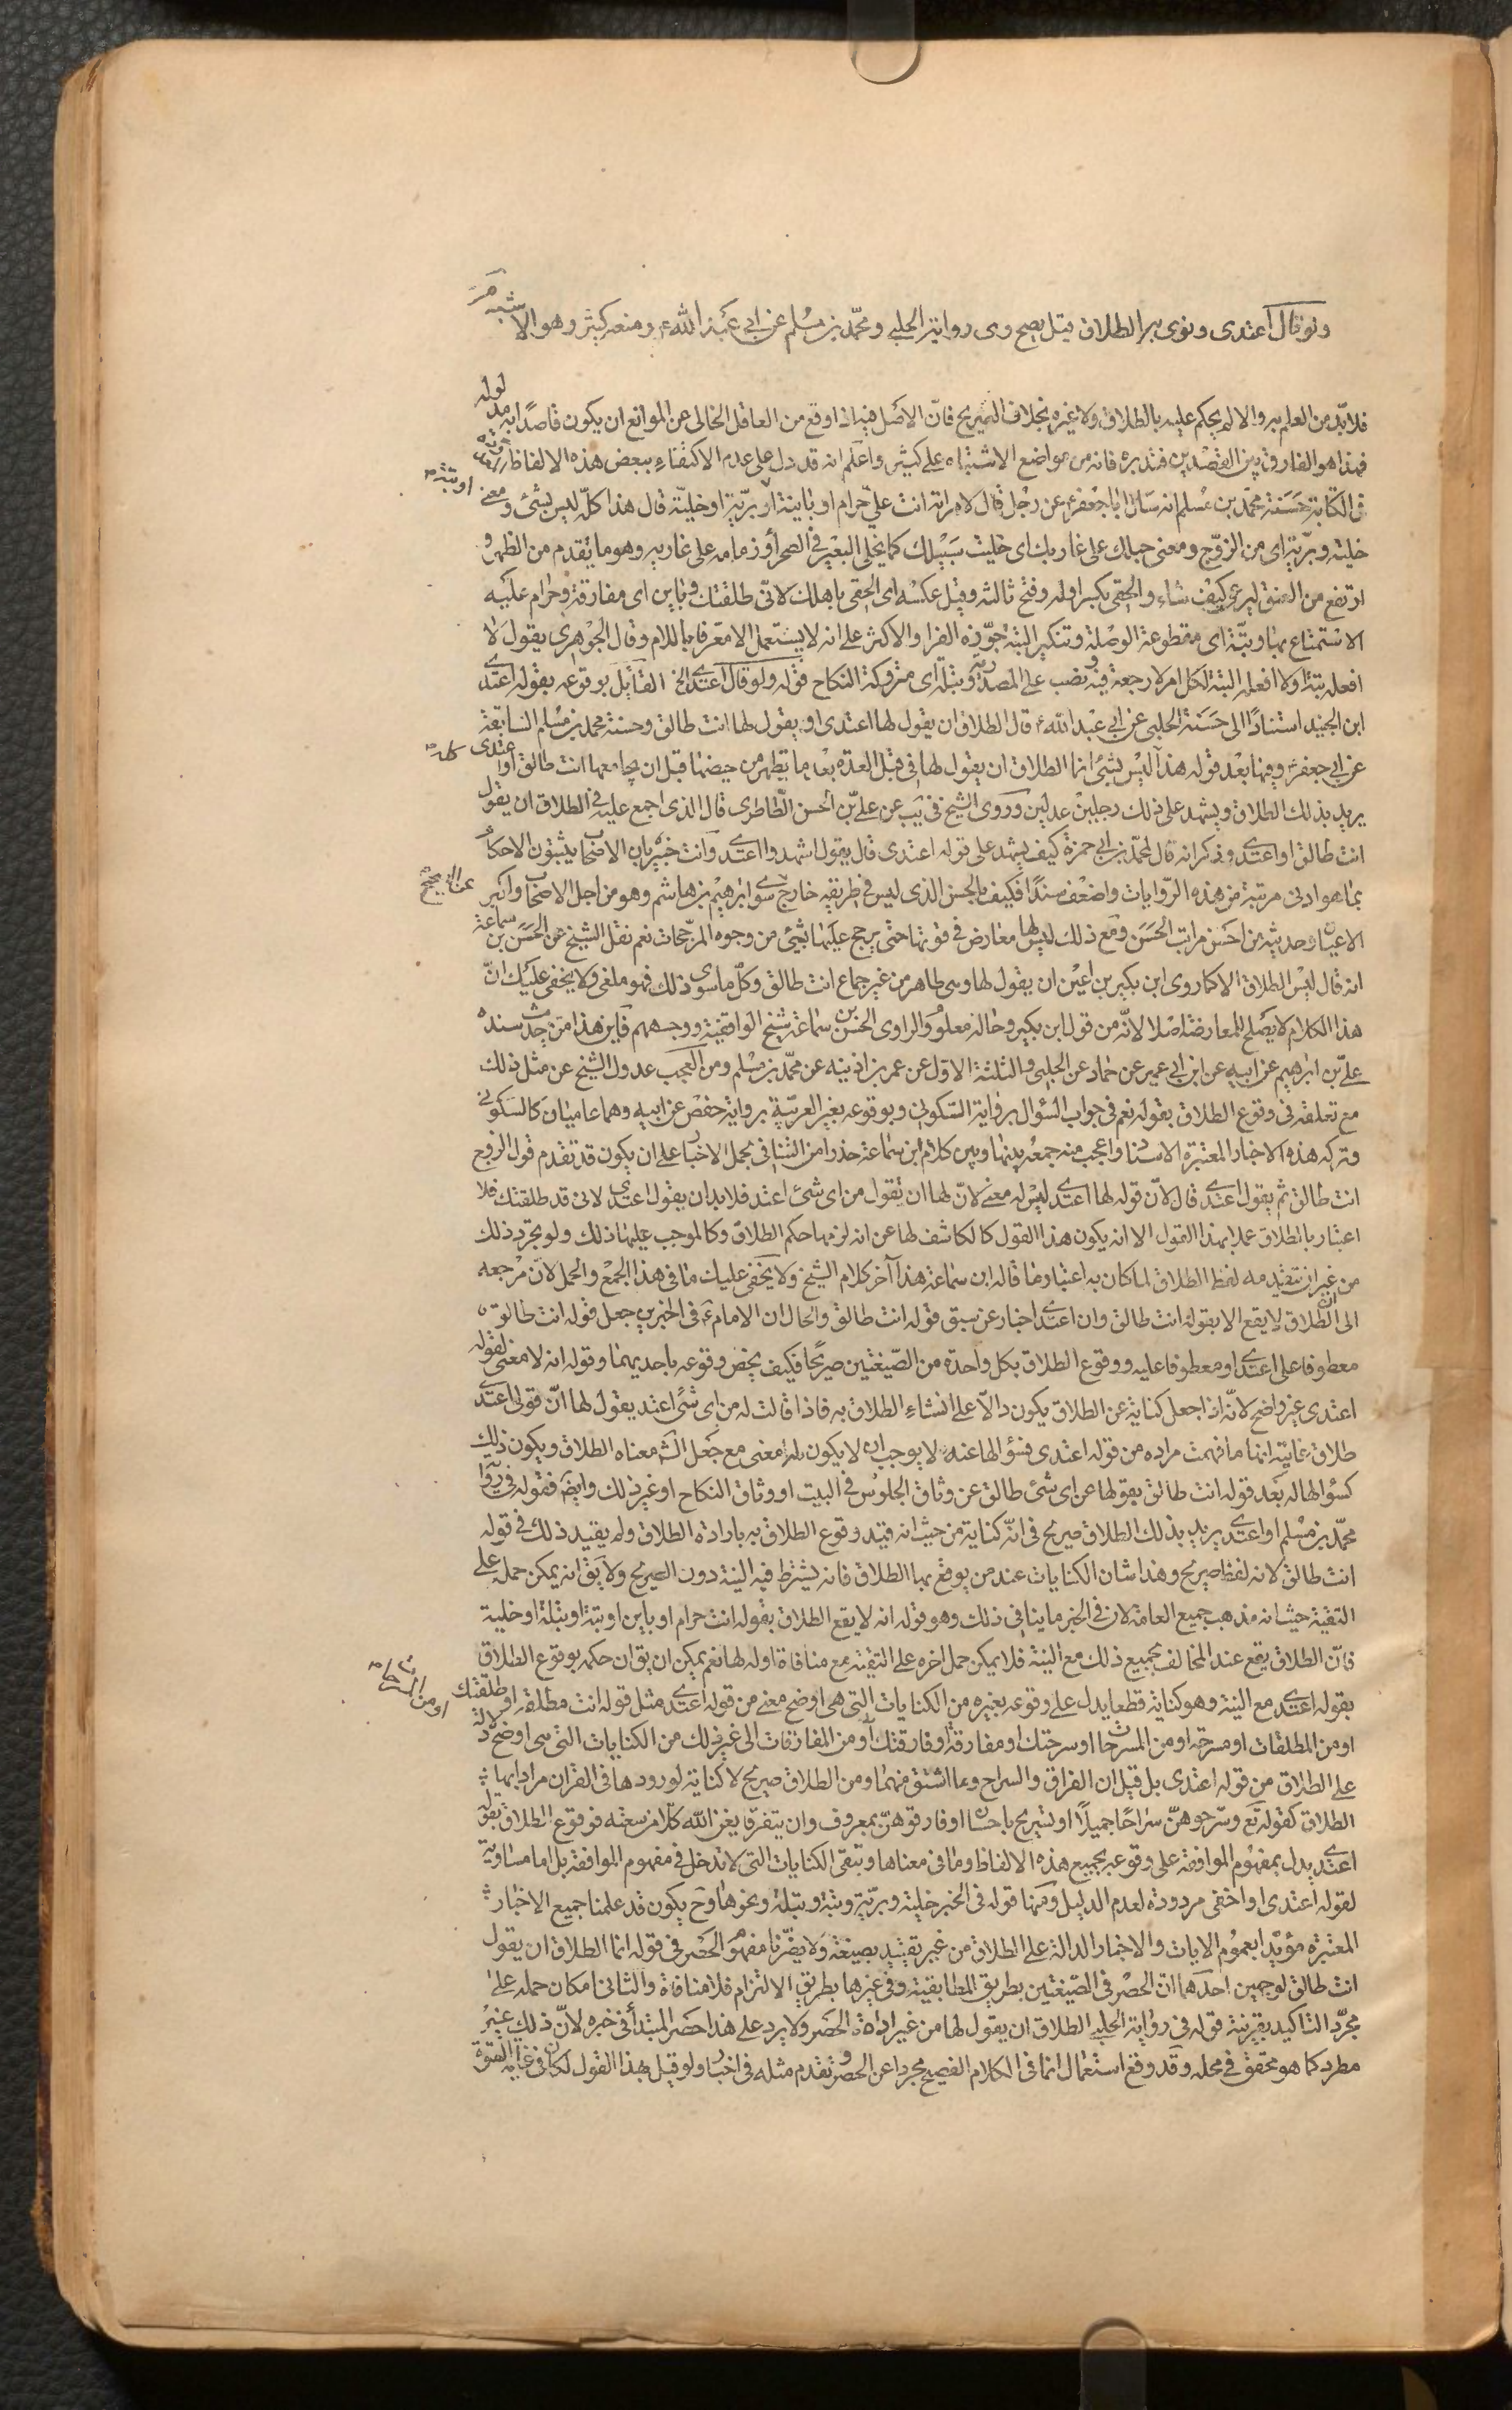 ولو قال اعتدى ونوى به الطلاق قيل يصح وهى رواية الحلبى ومحمّد بن مسلم عن ابى عبد الله ع ومنعه كثير وهو الاشبه
فلا بدّ من العلم به والا لم يحكم عليه بالطلاق ولا غيره بخلاف الصّريح فانّ الاصل فيه اذا وقع من العاقل الخالى عن الموانع ان يكون قاصدًا به مدلوله
فهذا هو الفارق بين القصدين فتدبره فانه من مواضع الاشتباه على كثير واعلم انه قد دل على عدم الاكتفاء ببعض هذه الالفاظ
فى الكتابة حَسَنة محمّد بن مسلم انه سَال ابا جعفر ع عن رجل قال لامراته انت علىّ حرام او باينة او بتّة او برّية او خليّة قال هذا كلّه ليس بشئ ومعنى
خلية وبرّية اى من الزوّج ومعنى حبلك على غاربك اى خليت سَبيلك كما يخلى البعير فى الصحرا وزمامه على غاربه وهو ما تقدم من الظهر و
ارتفع من العنق ليرعى كيف شاء والحقى بكسر اوله وفتح ثالثه وقيل عكسه اى الحقى باهلك لانّى طلقتك وباين اى مفارقة وحرام عليه
الاستمتاع بها وبتّة اى مقطوعة الوصلة وتنكير البتة جوّزه الفرا والاكثر على انه لا يستعمل الا معرّفا باللام وقال الجوهرى يقول لا
افعله بتة ولا افعله البتة لكل امر لا رجعة فيه ونصب على المصدرية وبتلة اى متروكة النكاح قوله ولو قال اعتدى الخ القايل بوقوعه بقوله اعتدى
ابن الجنيد استنادًا الى حَسَنة الحلبى عن ابى عبد الله ع قال الطلاق ان يقول لها اعتدى او يقول لها انت طالق وحسنة محمد بن مسلم السّابقة
عن ابى جعفر ع وفيها بعد قوله هذا كله ليس بشئ انما الطلاق ان يقول لها فى قبل العدّة بعد ما تطهر من حيضها قبل ان يجامعها انت طالق او اعتدى
يريد بذلك الطلاق ويشهد على ذلك رجلين عدلين وروى الشيخ فى يب عن علىّ بن الحسن الطّاطرى قال الذى اجمع عليه فى الطلاق ان يقول
انت طالق او اعتدى وذكر انه قال لمحمّد بن ابى حمزة كيف يشهد على قوله اعتدى قال يقول اشهدوا اعتدى وانت خبير بان الاصحاب يثبتون الاحكام
بما هو ادنى مرتبة من هذه الرّوايات واضعف سندًا فكيف بالحسن الذى ليس فى طريقه خارج عن الصحيح سوى ابرهيم بن هاشم وهو من اجل الاصحاب واكبر
الاعيان وحديثه من احسن مراتب الحسَن ومع ذلك ليس لها معارض فى قوتها حتى يرجح عليها بشئ من وجوه المرجّحات نعم نقل الشيخ عن الحسَن بن سماعة
انه قال ليس الطلاق الا كما روى ابن بكير بن اعين ان يقول لها وهى طاهر من غير جماع انت طالق وكلّ ما سوى ذلك فهو ملغى ولا يخفى عليك انّ
هذا الكلام لا يصلح للمعارضة اصلا لانّه من قول ابن بكير وحاله معلوم والراوى الحسَن بن سماعة شيخ الواقفيّة ووجههم فاين هذا من حديث سنده
علىّ بن ابرهيم عن ابيه عن ابن ابى عمير عن حماد عن الحلبى والثلثة الاول عن عمر بن اذينه عن محمّد بن مسلم ومن العجب عدول الشيخ عن مثل ذلك
مع تعلقه فى وقوع الطلاق بقوله نعم فى جواب السّؤال برواية السّكونى وبوقوعه بغير العربيّة برواية حفص عن ابيه وهما عاميّان كالسّكونى
وتركه هذه الاخبار المعتبرة الاسناد واعجب منه جمعه بينها وبين كلام ابن سماعة حذرا من التنافى بحمل الاخبار على ان يكون قد تقدم قول الزوج
انت طالق ثم يقول اعتدى قال لانّ قوله لها اعتدى ليس له معنى لانّ لها ان تقول من اى شئ اعتد فلا بد ان يقول اعتدى لانى قد طلقتك فلا
اعتبار بالطلاق عملا بهذا القول الا انه يكون هذا القول كالكاشف لها عن انه لزمها حكم الطلاق وكالموجب عليها ذلك ولو تجرّد ذلك
من غير ان يتقدمه لفظ الطلاق لما كان به اعتبار على ما قاله ابن سماعة هذا آخر كلام الشيخ ولا يخفى عليك ما فى هذا الجمع والحمل لانّ مرجعه
الى ان الطلاق لا يقع الا بقوله انت طالق وان اعتدى اخبار عن سبق قوله انت طالق والحال ان الامام ع فى الخبرين جعل قوله انت طالق
معطوفا على اعتدى او معطوفا عليه ووقوع الطلاق بكل واحدة من الصّيغتين صريحًا فكيف يخص وقوعه باحديهما وقوله انه لا معنى لقوله
اعتدى غير واضح لانّه اذا جعل كناية عن الطلاق يكون دالّا على انشاء الطلاق به فاذا قالت له من اى شئ اعتد يقول لها انّ قولى اعتدى
طلاق غايته انها ما فهمت مراده من قوله اعتدى فسؤالها عنه لا يوجب ان لا يكون له معنى مع جعل الشّ معناه الطلاق ويكون ذلك
كسؤالها له بعد قوله انت طالق بقولها عن اى شئ طالق عن وثاق الجلوس فى البيت او وثاق النكاح او غير ذلك وايضًا فقوله فى رواية
محمّد بن مسلم او اعتدى يريد بذلك الطلاق صريح فى انّه كناية من حيث انه قيّد وقوع الطلاق به بارادة الطلاق ولم يقيّد ذلك فى قوله
انت طالق لانه لفظ صريح وهذا شان الكنايات عند من يوقع بها الطلاق فانه يشترط فيه النية دون الصريح ولا يق انه يمكن حمله على
التقيّة حيث انه مذهب جميع العامّة لان فى الخبر ما ينافى ذلك وهو قوله انه لا يقع الطلاق بقوله انت حرام او باين او بتة او بتلة او خلية
فانّ الطلاق يقع عند المخالف بجميع ذلك مع النية فلا يمكن حمل اخره على التقيّة مع منافاة اوله لها نعم يمكن ان يق ان حكمه بوقوع الطلاق
بقوله اعتدى مع النية وهو كناية قطعا يدل على وقوعه بغيره من الكنايات التى هى اوضح معنى من قوله اعتدى مثل قوله انت مطلقة او طلقتك
او من المطلقات او مسرحة او من المسرحات او سرحتك او مفارقة او فارقتك او من المفارقات الى غير ذلك من الكنايات التى هى اوضح دلالة
على الطلاق من قوله اعتدى بل قيل ان الفراق والسراح وما اشتق منهما ومن الطلاق صريح لا كناية لورودها فى القران مرادا بها
الطلاق كقوله تع وسرّحوهنّ سراحًا جميلًا او تسريح باحسان او فارقوهنّ بمعروف وان يتفرّقا يغن الله كلّا من سعته فوقوع الطلاق بقوله
اعتدى يدل بمفهوم الموافقة على وقوعه بجميع هذه الالفاظ وما فى معناها وتبقى الكنايات التى لا تدخل فى مفهوم الموافقة بل اما مساوية
لقوله اعتدى او اخفى مردودة لعدم الدليل ومنها قوله فى الخبر خلية وبرّية وبتة وبتلة ونحوها وح يكون قد علمنا جميع الاخبار
المعتبرة مؤيّدا بعموم الايات والاخبار الدالة على الطلاق من غير تقييد بصيغة ولا يضرّنا مفهوم الحصر فى قوله انما الطلاق ان يقول
انت طالق لوجهين احدهما انّ الحصر فى الصّيغتين بطريق المطابقة وفى غيرها بطريق الالتزام فلا منافاة والثانى امكان حمله على
مجرّد التاكيد بقرينة قوله فى رواية الحلبى الطلاق ان يقول لها من غير اداة الحصر ولا يرد على هذا حصر المبتدأ فى خبره لانّ ذلك غير
مطرد كما هو محقق فى محله وقد وقع استعمال انما فى الكلام الفصيح مجردا عن الحصر وتقدم مثله فى اخبار ولو قيل بهذا القول لكان فى غاية القوة